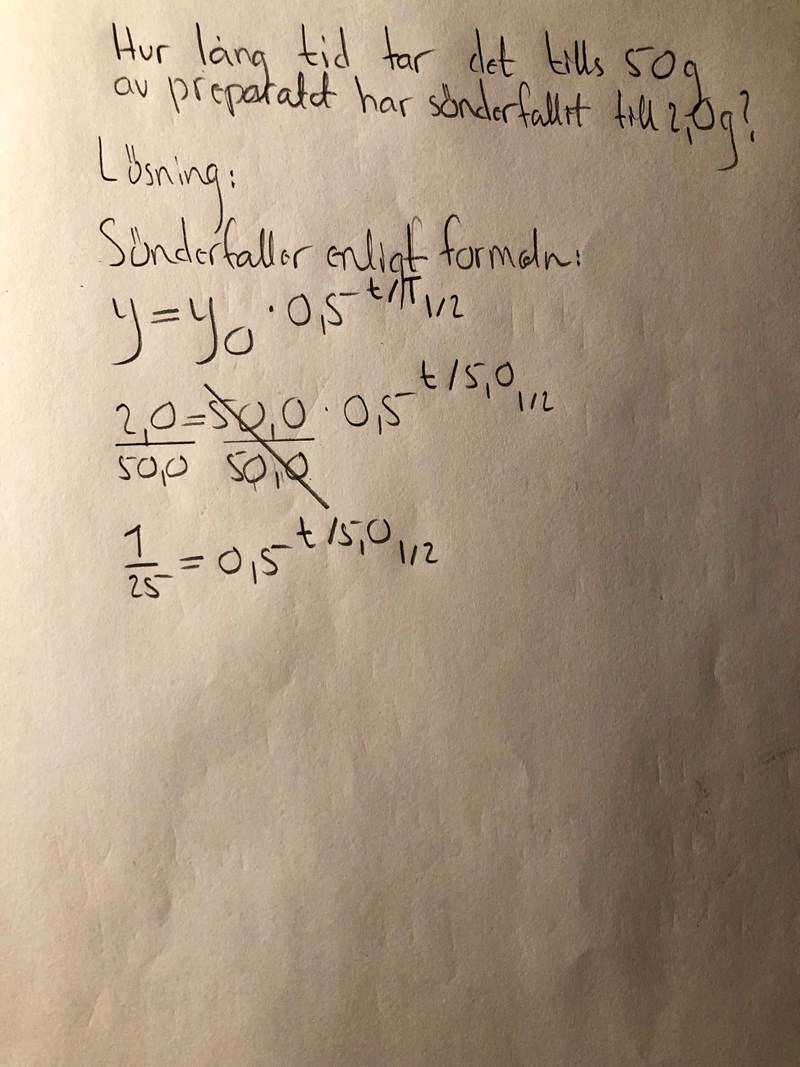 Hur lång tid tar det tills 50g
av preparatet har sönderfallit till 2,0g?
Lösning:
Sönderfaller enligt formeln:
y=y₀·0,5^-t/T 1/2
2,0/50,0=50,0/50,0·0,5^t/5,0 1/2
1/25=0,5^t/5,0 1/2